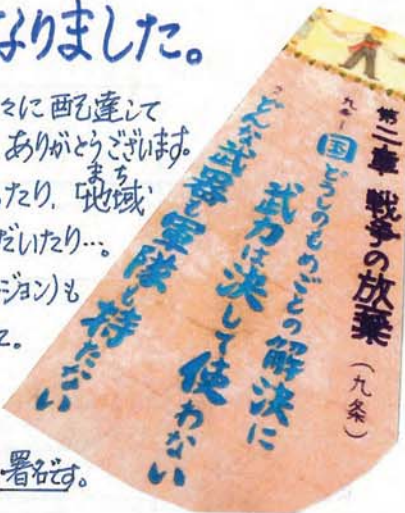 なりました。
々に配達して
ありがとうございます。
ったり、地域
まち
だいたり…。
ジョン)も
て。
署名です。
第二章 戦争の放棄（九条）
九条ー
国どうしのもめごとの解決に
武力は決して使わない
どんな武器も軍隊も持たない